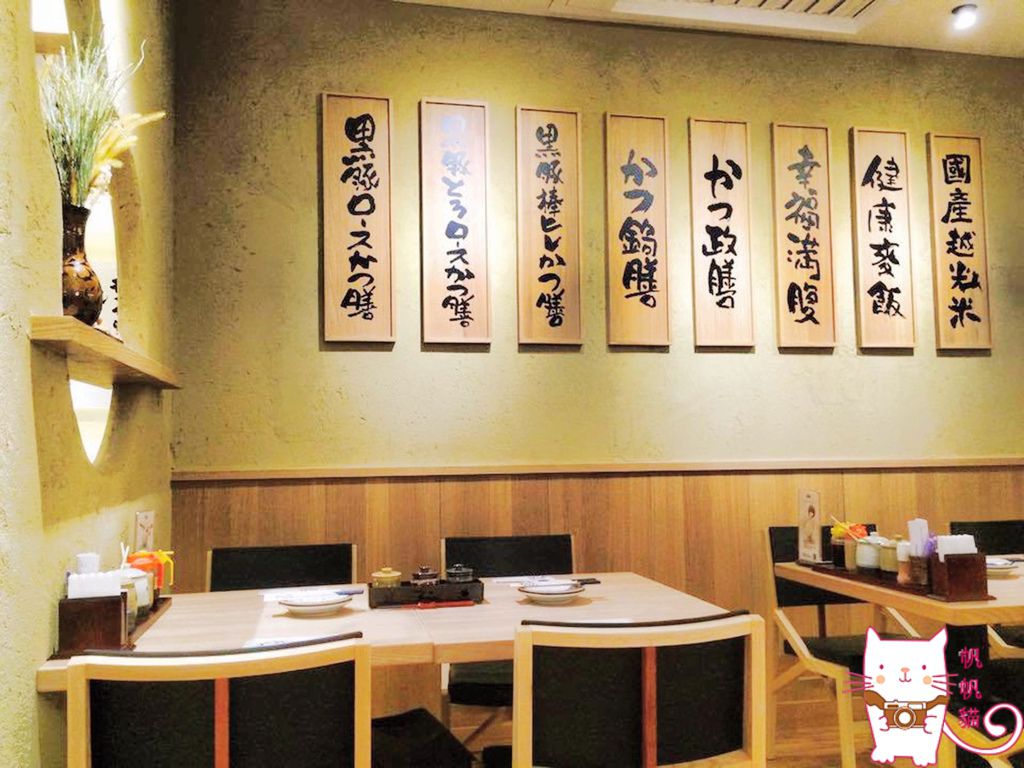 黒豚ロースかつ膳
黒豚とろロースかつ膳
黒豚棒ヒレかつ膳
かつ鍋膳
かつ政膳
幸福満腹
健康麥飯
國産越光米
帆帆貓